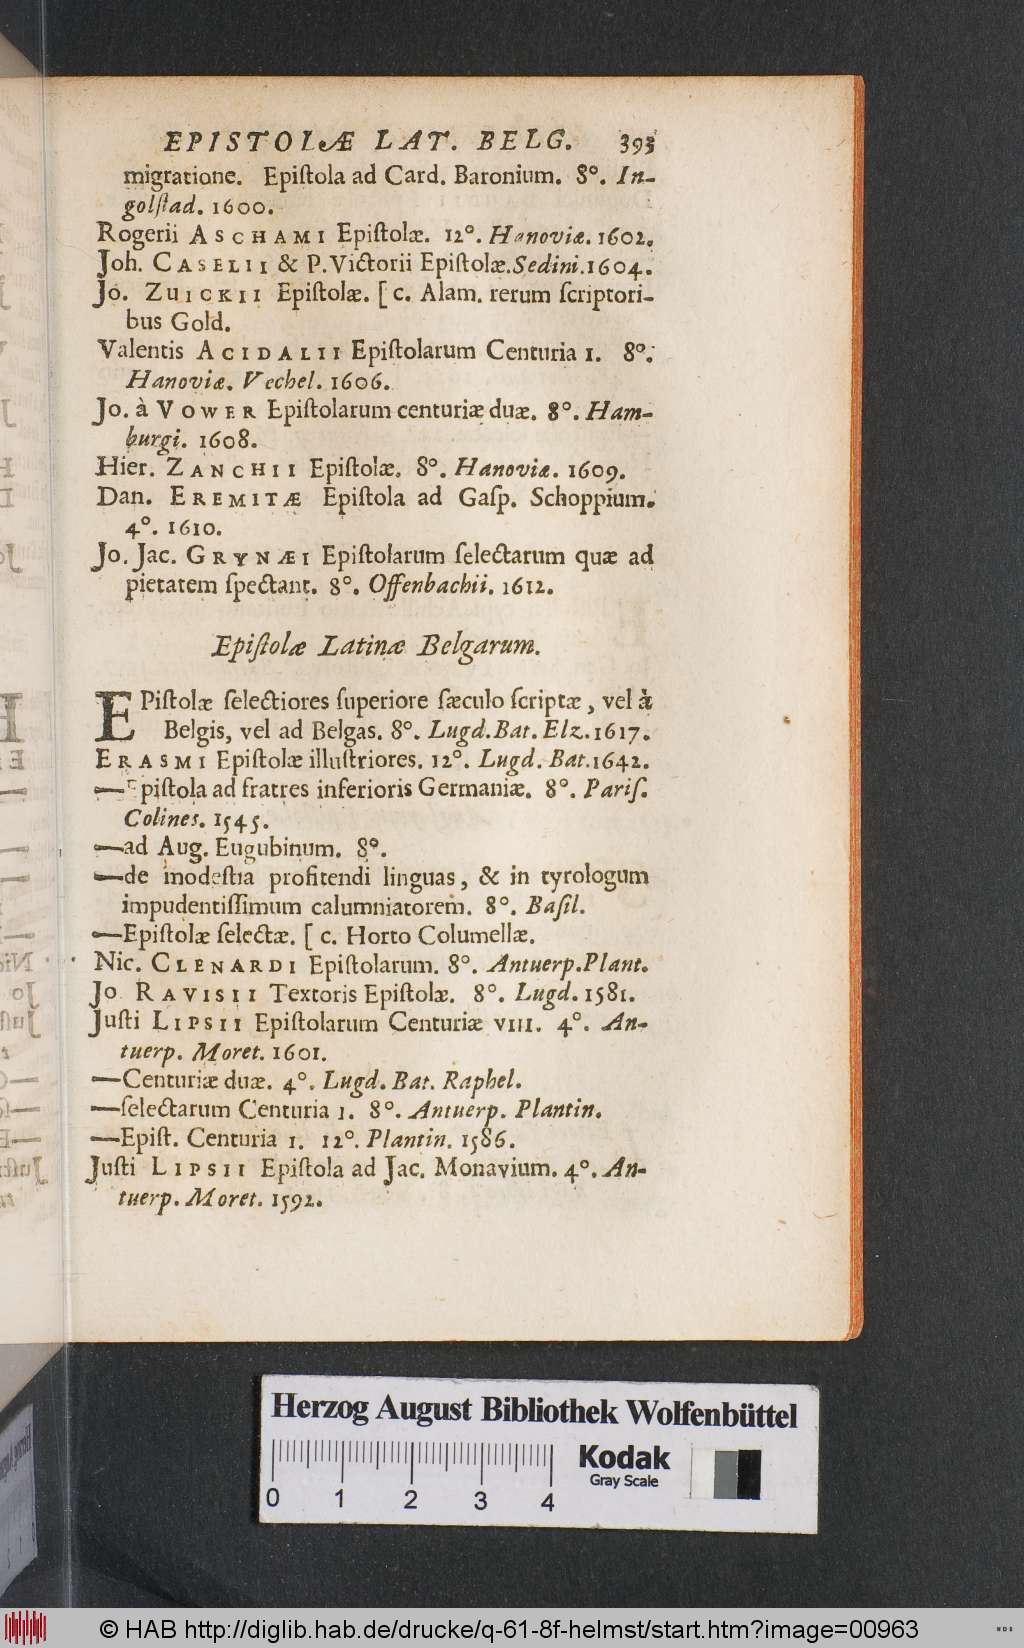 EPISTOLÆ LAT. BELG. 393
migratione. Epiſtola ad Card. Baronium. 8°. In-
golſtad. 1600.
Rogerii ASCHAMI Epiſtolæ. 12°. Hanoviæ. 1602.
Joh. CASELII & P. Victorii Epiſtolæ. Sedini. 1604.
Jo. ZUICKII Epiſtolæ. [ c. Alam. rerum ſcriptori-
bus Gold.
Valentis ACIDALII Epiſtolarum Centuria 1. 8°.
Hanoviæ. Vechel. 1606.
Jo. à VOWER Epiſtolarum centuriæ duæ. 8°. Ham-
burgi. 1608.
Hier. ZANCHII Epiſtolæ. 8°. Hanoviæ. 1609.
Dan. EREMITÆ Epiſtola ad Gaſp. Schoppium.
4°. 1610.
Jo. Jac. GRYNÆI Epiſtolarum ſelectarum quæ ad
pietatem ſpectant. 8°. Offenbachii. 1612.
Epiſtolæ Latinæ Belgarum.
EPiſtolæ ſelectiores ſuperiore ſæculo ſcriptæ, vel à
Belgis, vel ad Belgas. 8°. Lugd. Bat. Elz. 1617.
ERASMI Epiſtolæ illuſtriores. 12°. Lugd. Bat. 1642.
—Epiſtola ad fratres inferioris Germaniæ. 8°. Pariſ.
Colines. 1545.
—ad Aug. Eugubinum. 8°.
—de modeſtia profitendi linguas, & in tyrologum
impudentiſſimum calumniatorem. 8°. Baſil.
—Epiſtolæ ſelectæ. [ c. Horto Columellæ.
Nic. CLENARDI Epiſtolarum. 8°. Antuerp. Plant.
Jo RAVISII Textoris Epiſtolæ. 8°. Lugd. 1581.
Juſti LIPSII Epiſtolarum Centuriæ VIII. 4°. An-
tuerp. Moret. 1601.
—Centuriæ duæ. 4°. Lugd. Bat. Raphel.
—ſelectarum Centuria 1. 8°. Antuerp. Plantin.
—Epiſt. Centuria 1. 12°. Plantin. 1586.
Juſti LIPSII Epiſtola ad Jac. Monavium. 4°. An-
tuerp. Moret. 1592.
Herzog August Bibliothek Wolfenbüttel
Kodak
Gray Scale
0 1 2 3 4
© HAB http://diglib.hab.de/drucke/q-61-8f-helmst/start.htm?image=00963